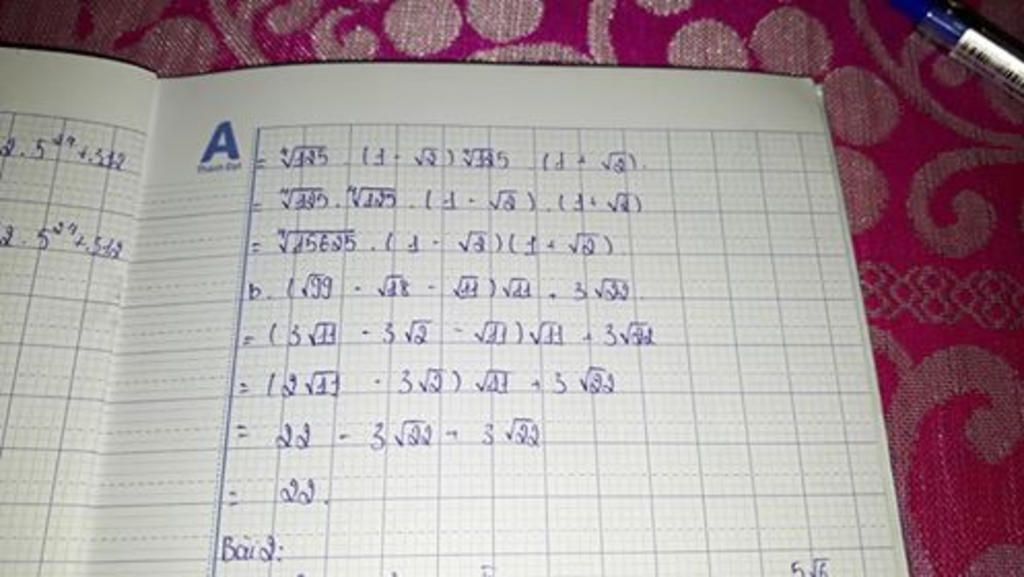 2.5²⁹+512
2.5²⁹+512
A
= ∜125 . (1 - √2) ∜125 . (1 + √2).
= ∜125 . ∜125 . (1 - √2) . (1+ √2)
= ∜15625 . (1 - √2)(1 + √2)
b. (√99 - √18 - √11)√11 + 3√22.
= (3√11 - 3√2 - √11)√11 + 3√22
= (2√11 - 3√2) √11 + 3√22
= 22 - 3√22 + 3√22
= 22.
Bài 2:
5√6